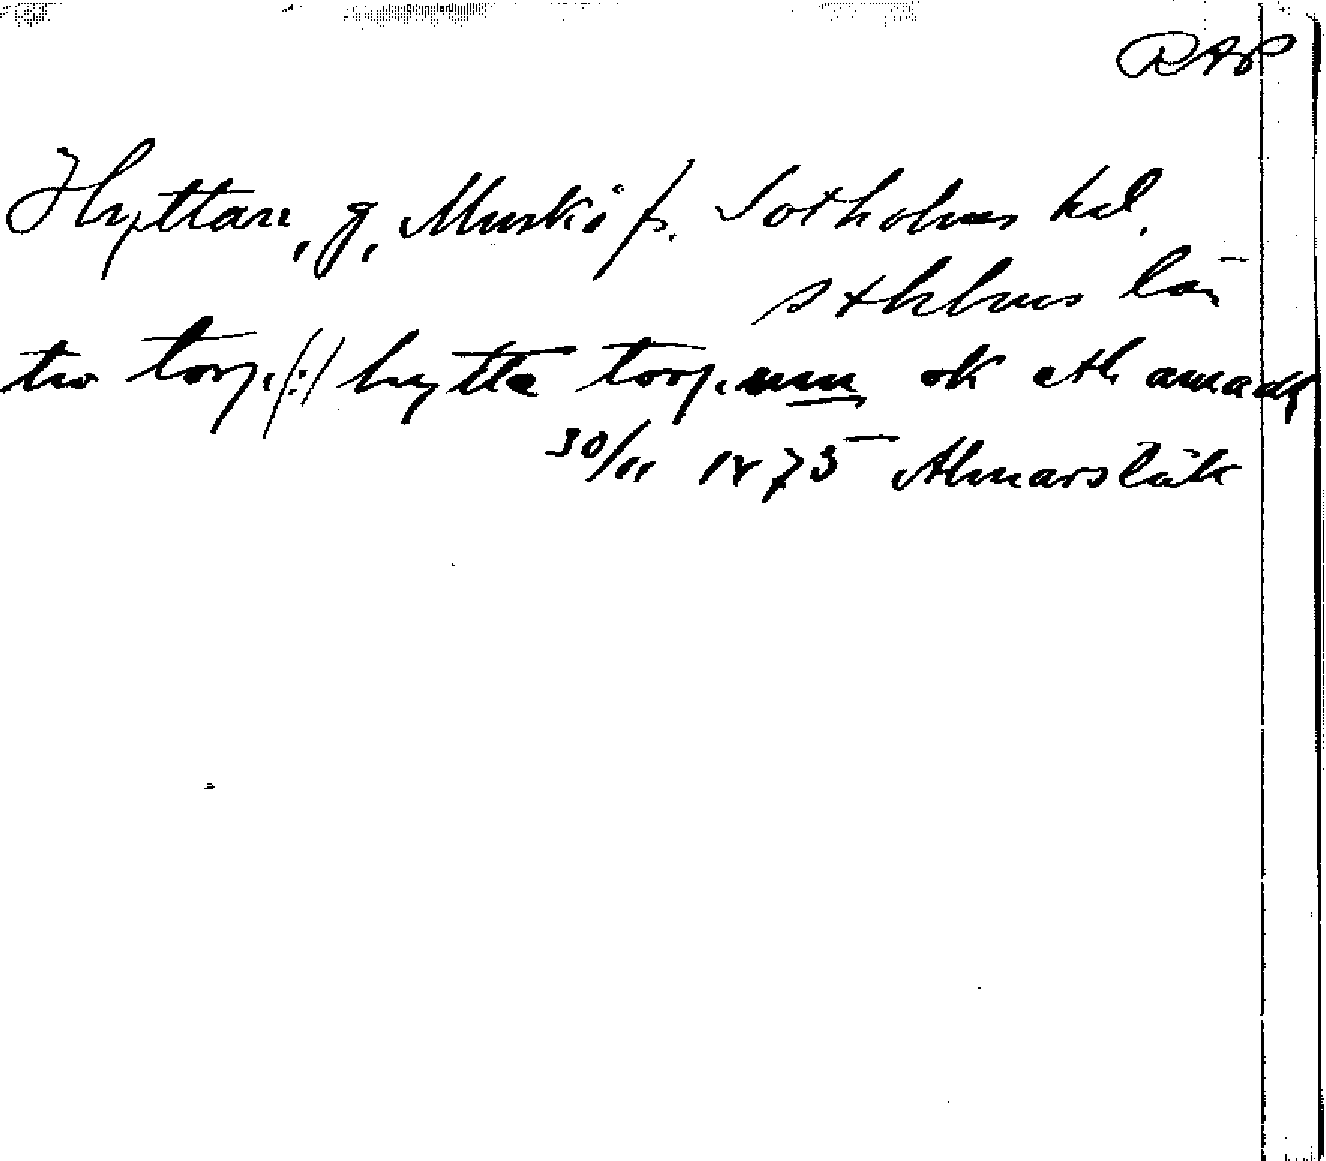 RAP
Hyttan, g, Muskö s. Sotholms hd.
Sthlms län
tw torp /:/ hytta torp ok eth annadt
30/11 1475 Almarslätt